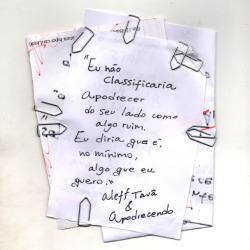 "Eu não
Classificaria
apodrecer
do seu lado como
algo ruim.
Eu diria que é,
no mínimo,
algo que eu
quero."
Aleff Tavã
&
Apodrecendo